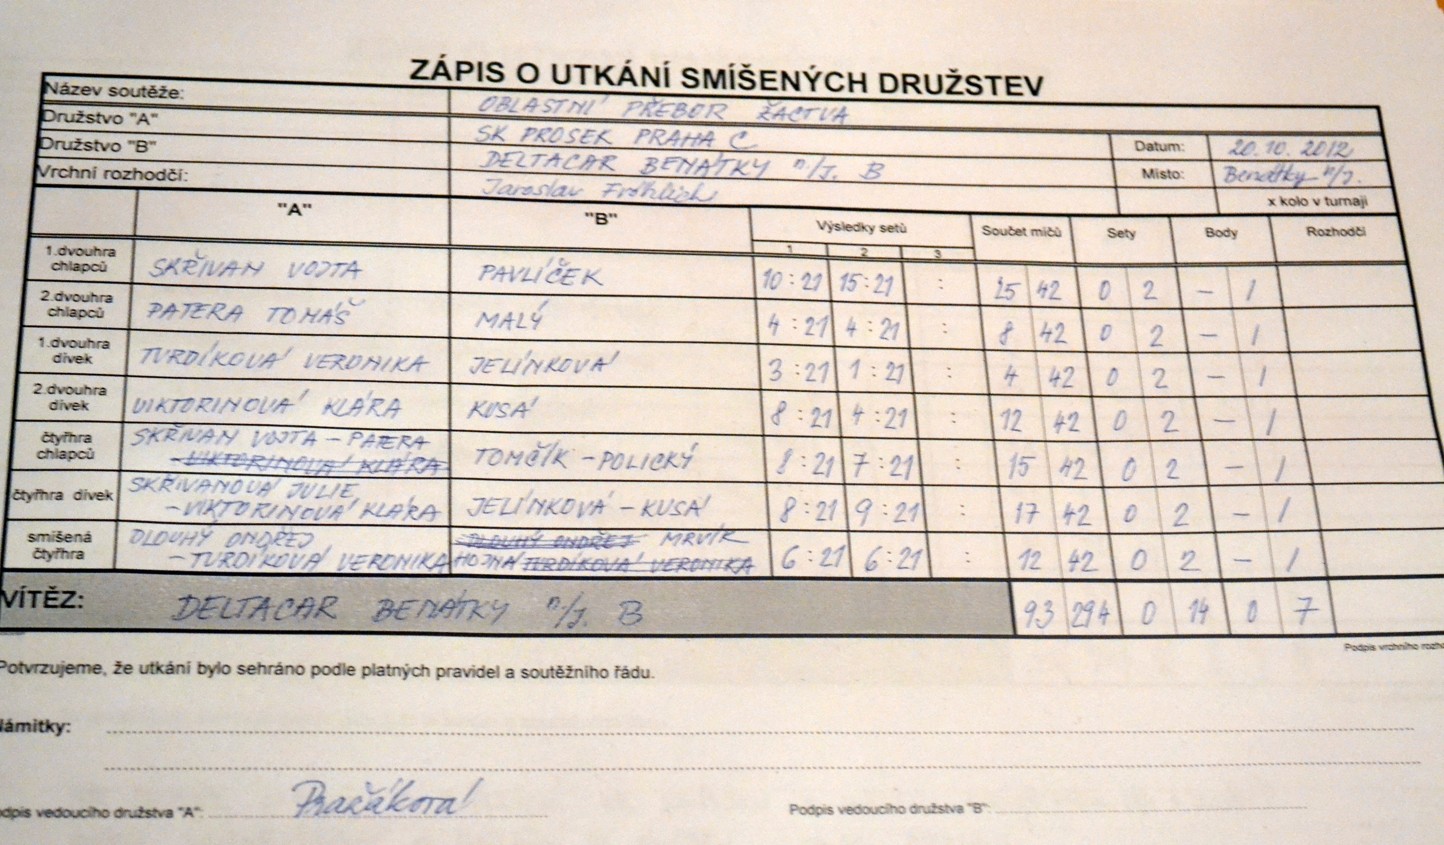 ZÁPIS O UTKÁNÍ SMÍŠENÝCH DRUŽSTEV
Název soutěže: OBLASTNÍ PŘEBOR ŽACTVA
Družstvo "A" SK PROSEK PRAHA C Datum: 20.10.2012
Družstvo "B" DELTACAR BENÁTKY n/J. B Místo: Benátky n/J.
Vrchní rozhodčí: Jaroslav Fröhlich x kolo v turnaji
"A" "B" Výsledky setů Součet míčů Sety Body Rozhodčí
1 2 3
1.dvouhra chlapců SKŘIVAN VOJTA PAVLÍČEK 10:21 15:21 : 25 42 0 2 – 1
2.dvouhra chlapců PATERA TOMÁŠ MALÝ 4:21 4:21 : 8 42 0 2 – 1
1.dvouhra dívek TURDÍKOVÁ VERONIKA JELÍNKOVÁ 3:21 1:21 : 4 42 0 2 – 1
2.dvouhra dívek VIKTORINOVÁ KLÁRA KUSÁ 8:21 4:21 : 12 42 0 2 – 1
čtyřhra chlapců SKŘIVAN VOJTA – PATERA TOMČÍK – POLICKÝ 8:21 7:21 : 15 42 0 2 – 1
– VIKTORINOVÁ KLÁRA
čtyřhra dívek SKŘIVANOVÁ JULIE JELÍNKOVÁ – KUSÁ 8:21 9:21 : 17 42 0 2 – 1
– VIKTORINOVÁ KLÁRA
smíšená čtyřhra DLOUHÝ ONDŘEJ DLOUHÝ ONDŘEJ MRVÍK 6:21 6:21 : 12 42 0 2 – 1
– TURDÍKOVÁ VERONIKA HOJNÁ TURDÍKOVÁ VERONIKA
VÍTĚZ: DELTACAR BENÁTKY n/J. B 93 294 0 14 0 7
Podpis vrchního
Potvrzujeme, že utkání bylo sehráno podle platných pravidel a soutěžního řádu.
Námitky:
Podpis vedoucího družstva "A": Pračáková Podpis vedoucího družstva "B":